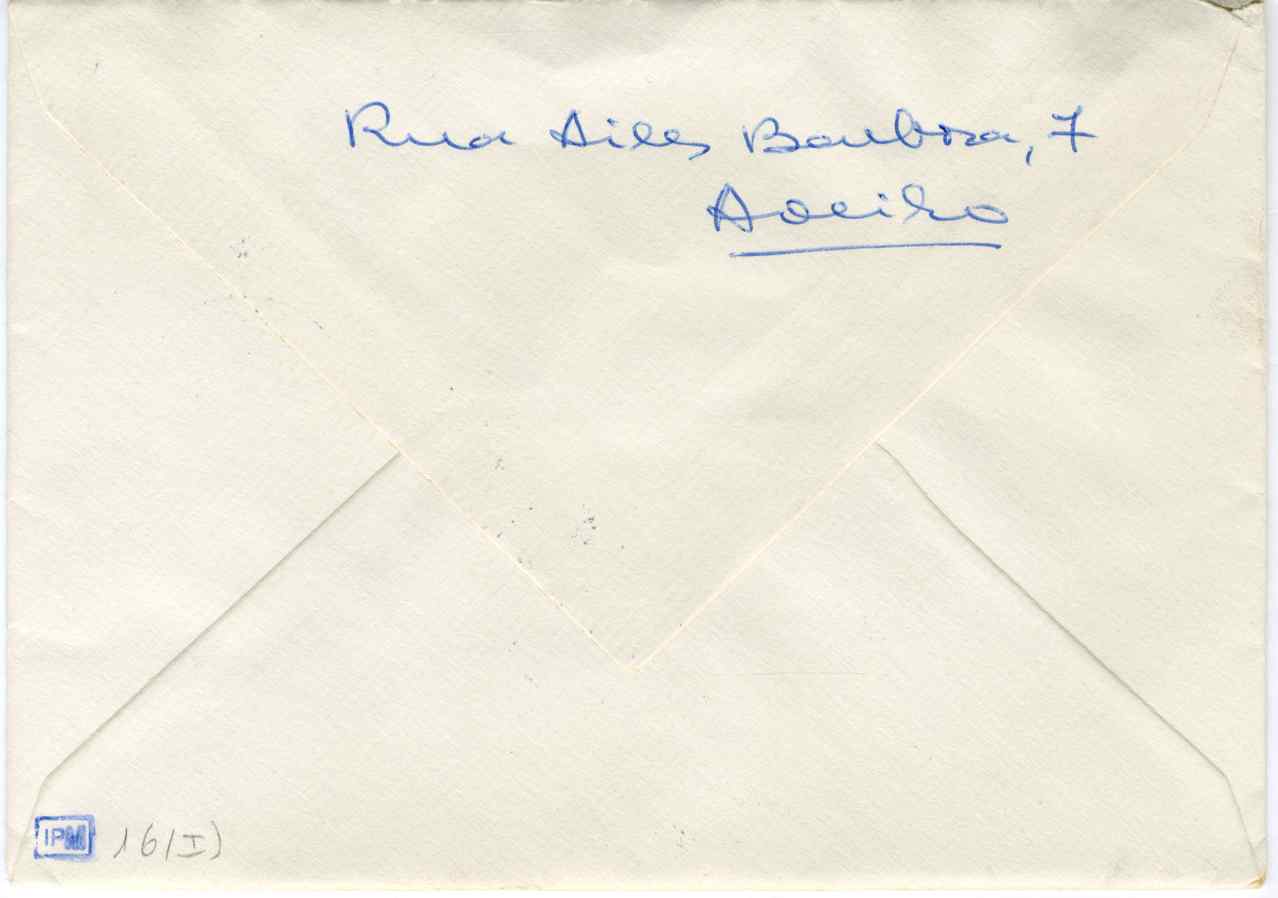 Rua Aires Barbosa, 7
Aveiro
IPM 16/I)